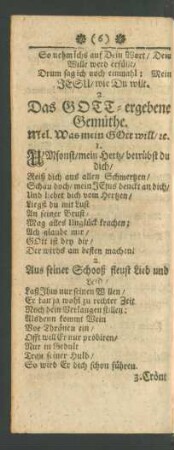 ❀ (6) ❀
So nehm ichs auf Dein Wort/ Dein
Wille werd erfüllt/
Drum sag ich noch einmahl: Mein
JESU/ wie Du wilt.
2.
Das GOTT-ergebene
Gemüthe.
Mel. Was mein GOtt will/ ꝛc.
1.
UMsonst/ mein Hertz/ betrübst du
dich/
Reiß dich aus allen Schmertzen/
Schau doch/ mein JEsus denckt an dich/
Und liebet dich von Hertzen/
Liegst du mit Lust
An seiner Brust/
Mag alles Unglück krachen;
Ach glaube nur/
GOtt ist bey dir/
Der wirds am besten machen!
2.
Aus seiner Schooß fleust Lieb und
Leid/
Laß Ihm nur seinen Willen/
Er kan ja wohl zu rechter Zeit
Mein Verlangen stillen;
Alsdenn kommt Wein
Vor Thränen ein/
Offt will Er nur probiren/
Nur in Gedult
Trau seiner Huld/
So wird Er dich schon führen.
3. Crönt